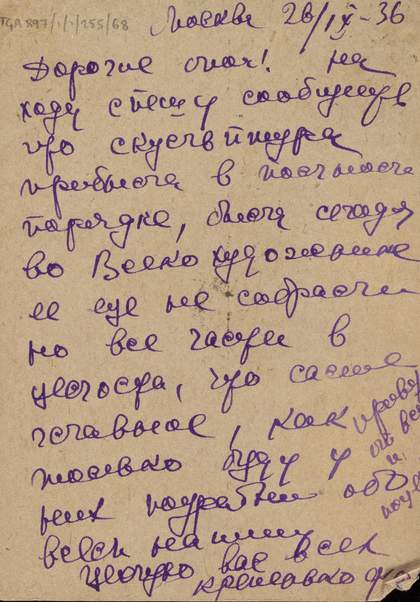 TGA 897/1/1/255/68
Москва 26/IX-36
Дорогие мои! На
ходу спешу сообщить
что скульптура
прибыла в полном
порядке, была сегодня
во Всекохудожнике
ее еще не собрали
но все части в
целости, что самое
главное, как
только буду у
них подробно обо
всем напишу
целую вас всех
крепко